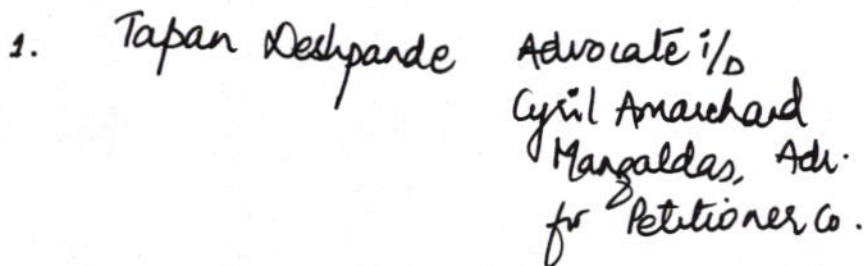 1. Tapan Deshpande Advocate i/b
Cyril Amarchand
Mangaldas, Adv.
for Petitioner Co.